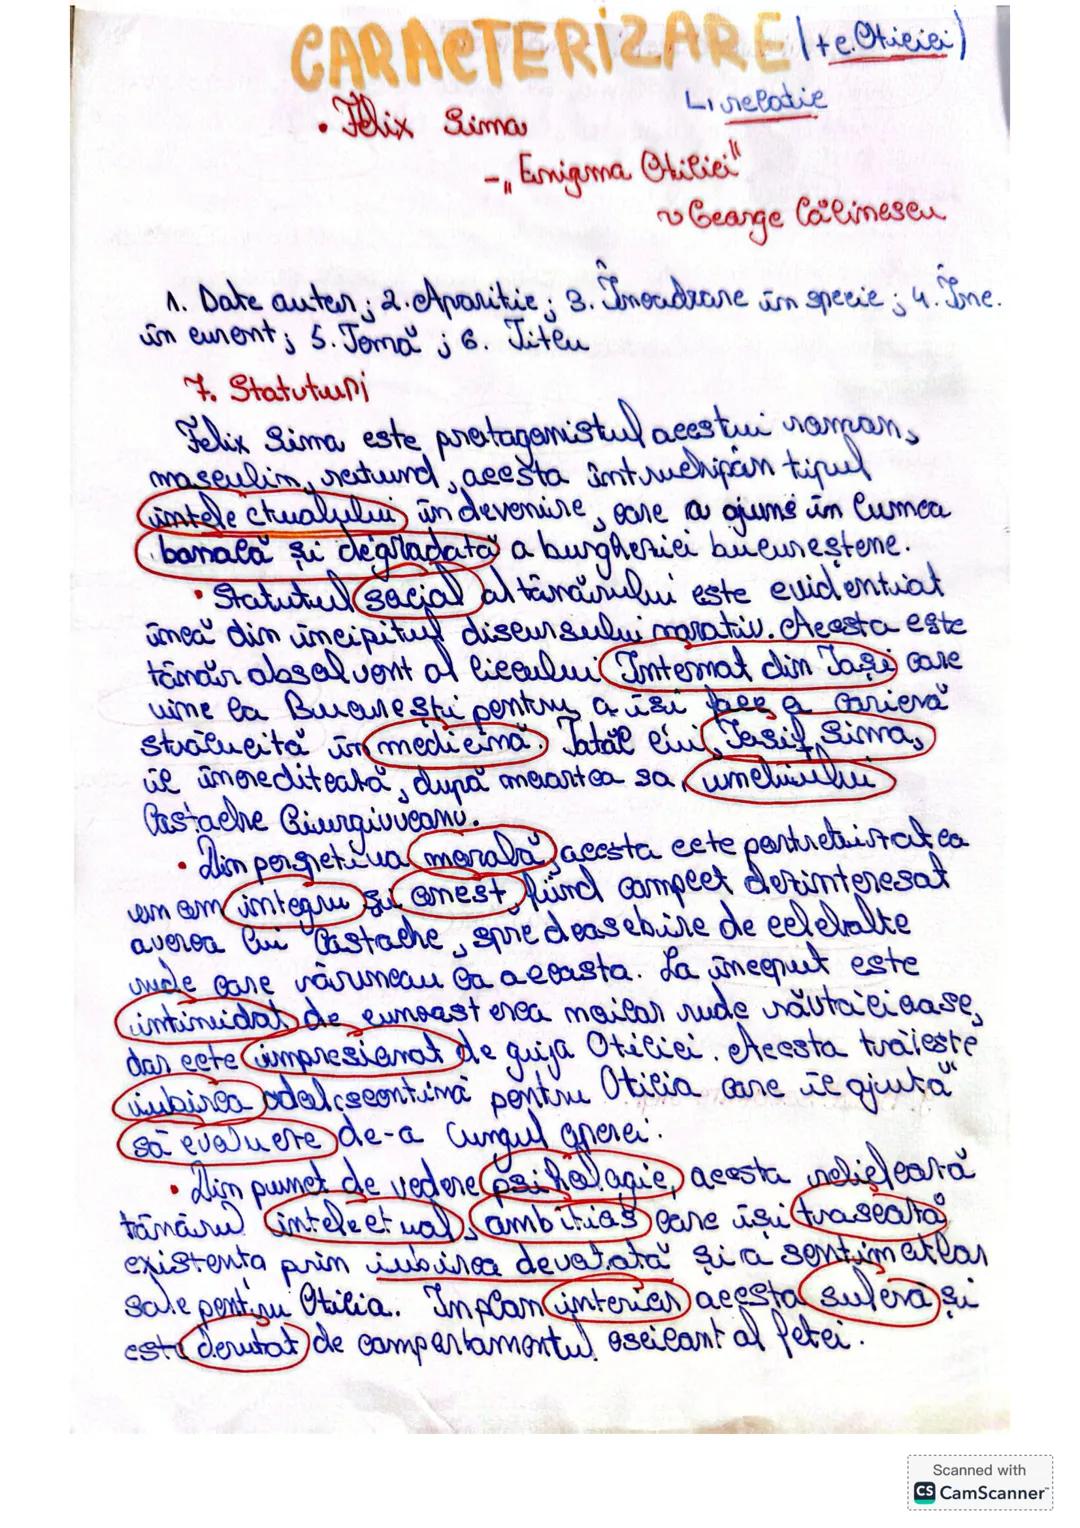 CARACTERIZARE (+ c. Otiliei)
L> relație
• Felix Sima
- „Enigma Otiliei"
~ George Călinescu
1. Date autor; 2. Apariție; 3. Încadrare în specie; 4. Înc.
în curent; 5. Temă; 6. Titlu
7. Statuturi
Felix Sima este protagonistul acestui roman,
masculin, rotund, acesta întruchipân tipul
intelectualului în devenire, care a ajuns în lumea
banală și degradată a burgheziei bucureștene.
• Statutul social al tânărului este evidențiat
încă din incipitul discursului narativ. Acesta este
tânăr absolvent al liceului Internat din Iași care
vine la București pentru a își face a carieră
strălucită în medicină. Tatăl lui, Iosif Sima,
îl încreditează, după moartea sa, unchiului
Costache Giurgiuveanu.
• Din perspetiva morală, acesta este portretuistat ca
un om integru și onest, fiind complet dezinteresat
averea lui Costache, spre deosebire de celelalte
rude care râvneau la aceasta. La început este
intimidat de cunoașterea noilor rude răutăcioase,
dar este impresionat de grija Otiliei. Acesta trăiește
iubirea adolescentină pentru Otilia care îl ajută
să evolueze de-a lungul operei.
• Din punct de vedere psihologic, acesta reliefează
tânărul intelectual, ambițias care își trasează
existența prin iubirea devotată și a sentimetlor
sale pentru Otilia. In plan interior acesta suferă și
este derutat de comportamentul oscilant al fetei.
Scanned with
CS CamScanner